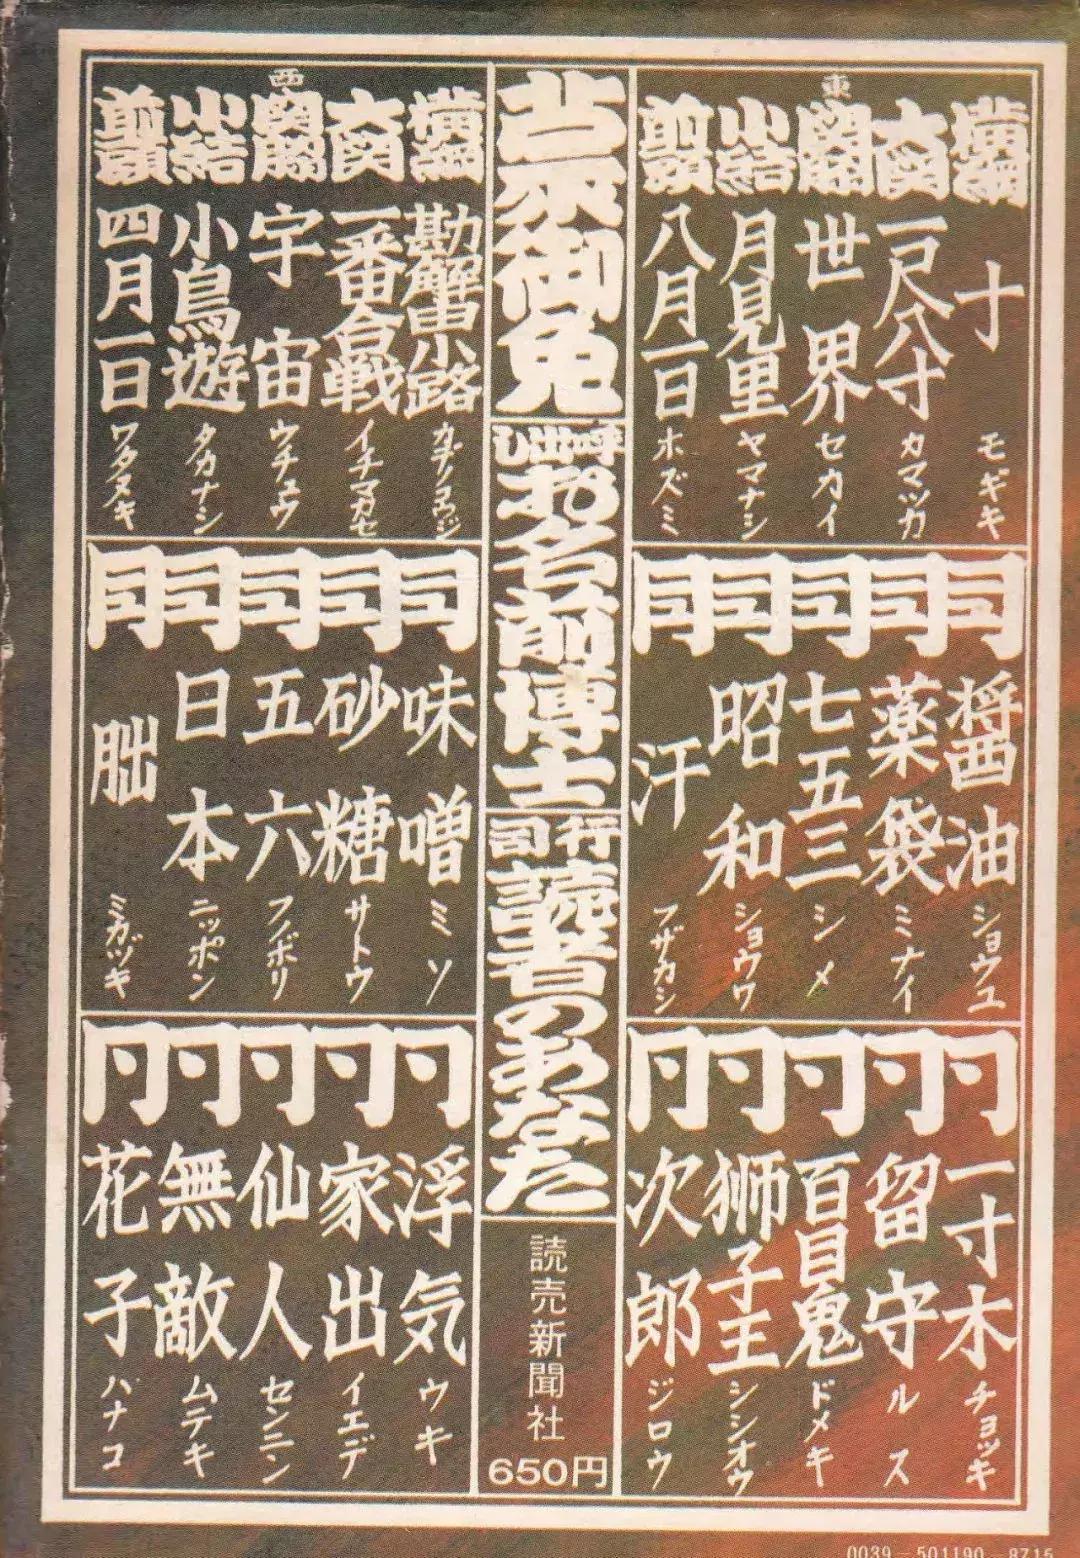 横綱 十 モギキ
大関 一尺八寸 カマツカ
東 関脇 世界 セカイ
小結 月見里 ヤマナシ
前頭 八月一日 ホズミ
同 醤油 ショウユ
同 薬袋 ミナイ
同 七五三 シメ
同 昭和 ショウワ
同 汗 フザカシ
同 一寸木 チョッキ
同 留守 ルス
同 百目鬼 ドメキ
同 獅子王 シシオウ
同 次郎 ジロウ
蒙御免
呼出し お名前博士
行司 読者のあなた
読売新聞社
650円
横綱 勘解由小路 カデノコウジ
大関 一番合戦 イチマカセ
西 関脇 宇宙 ウチュウ
小結 小鳥遊 タカナシ
前頭 四月一日 ワタヌキ
同 味噌 ミソ
同 砂糖 サトウ
同 五六 フノボリ
同 日本 ニッポン
同 朏 ミカヅキ
同 浮気 ウキ
同 家出 イエデ
同 仙人 センニン
同 無敵 ムテキ
同 花子 ハナコ
0039-501190-8715